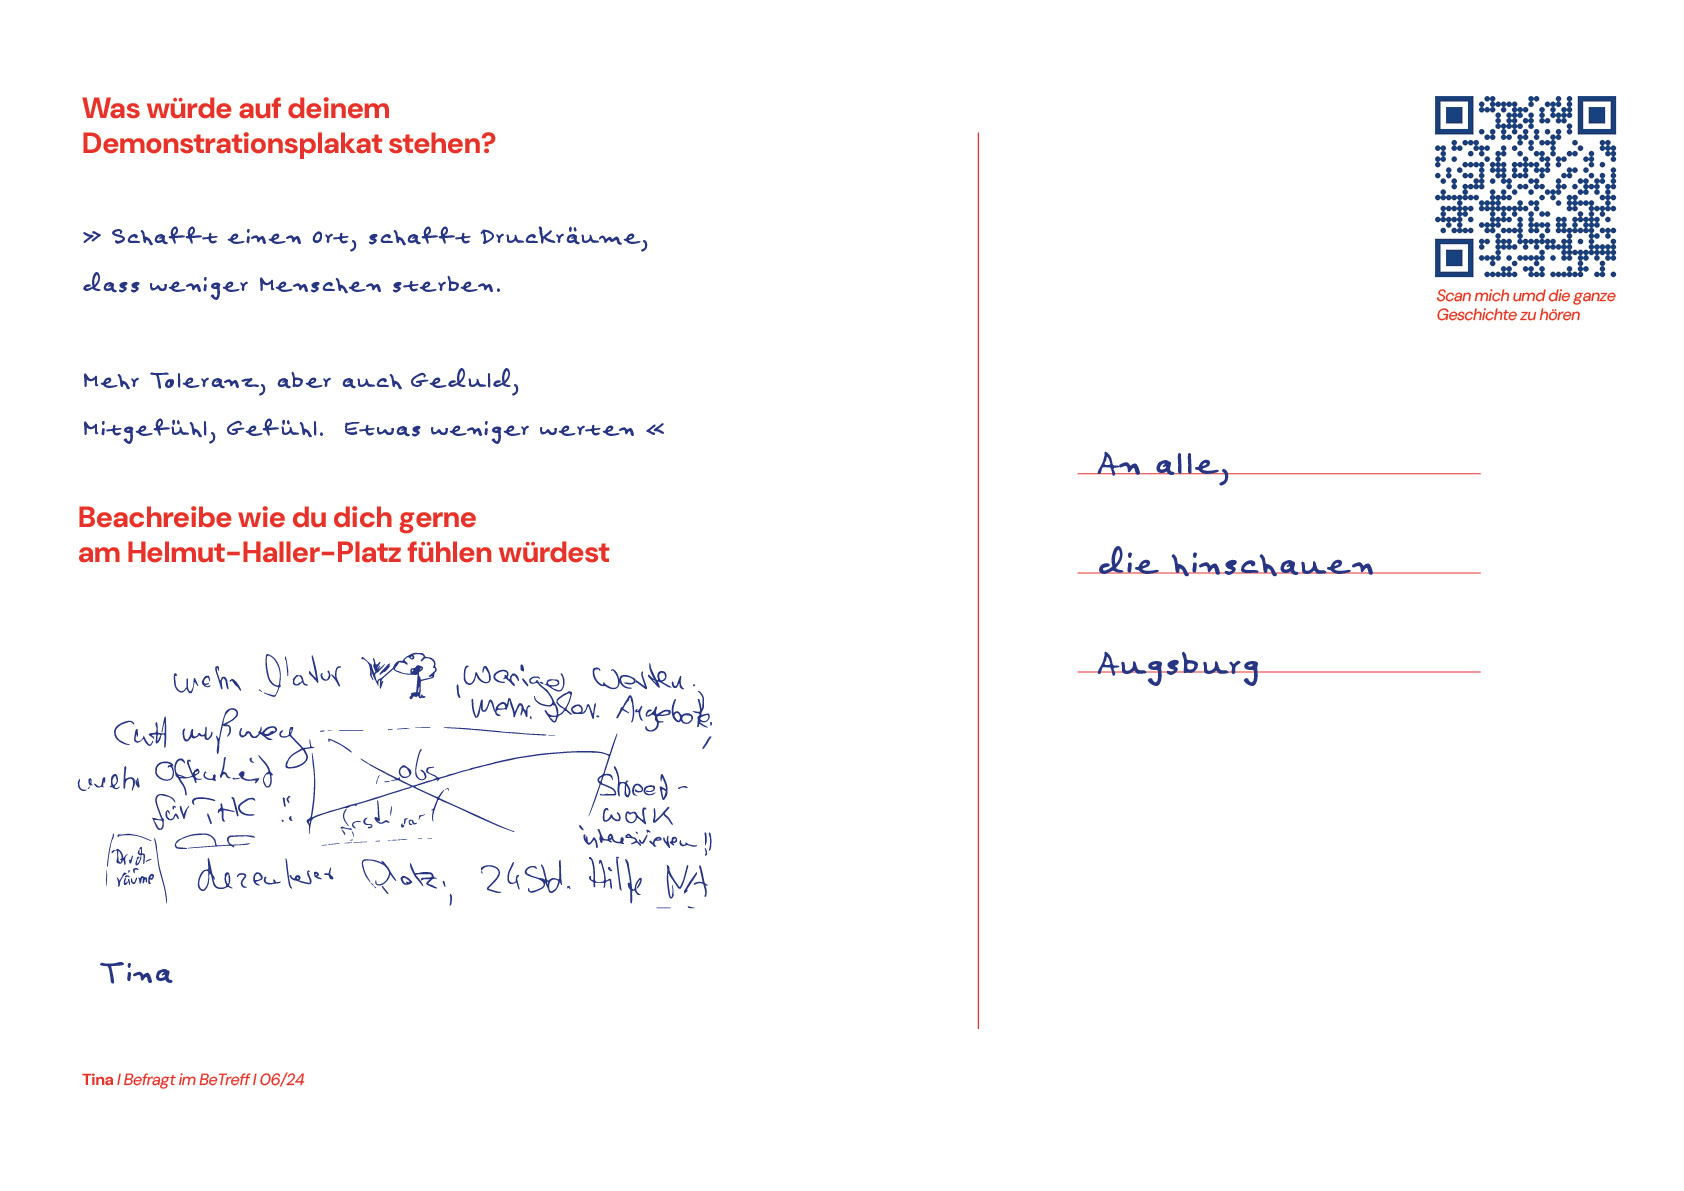 Was würde auf deinem
Demonstrationsplakat stehen?
» Schafft einen Ort, schafft Druckräume,
dass weniger Menschen sterben.
Mehr Toleranz, aber auch Geduld,
Mitgefühl, Gefühl. Etwas weniger werten «
Beachreibe wie du dich gerne
am Helmut-Haller-Platz fühlen würdest
mehr Natur weniger werten.
mehr Angebote,
muß weg
mehr Offenheid
für THC !!
Street-
work
intensivieren!!
Druck-
räume
dezenterer Platz, 24 Std. Hilfe NA
Tina
Tina I Befragt im BeTreff I 06/24
Scan mich umd die ganze
Geschichte zu hören
An alle,
die hinschauen
Augsburg